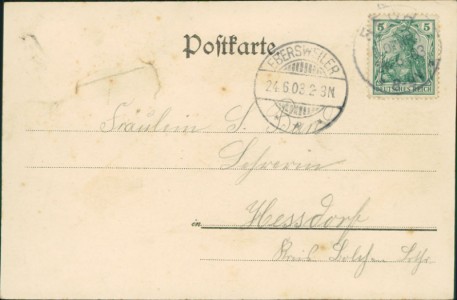 Postkarte
5 5
DEUTSCHES REICH
EBERSWEILER
24.6.03.2-3N
Fräulein L.
Lehrerin
in Hessdorf
Kreis Bolchen Lothr.